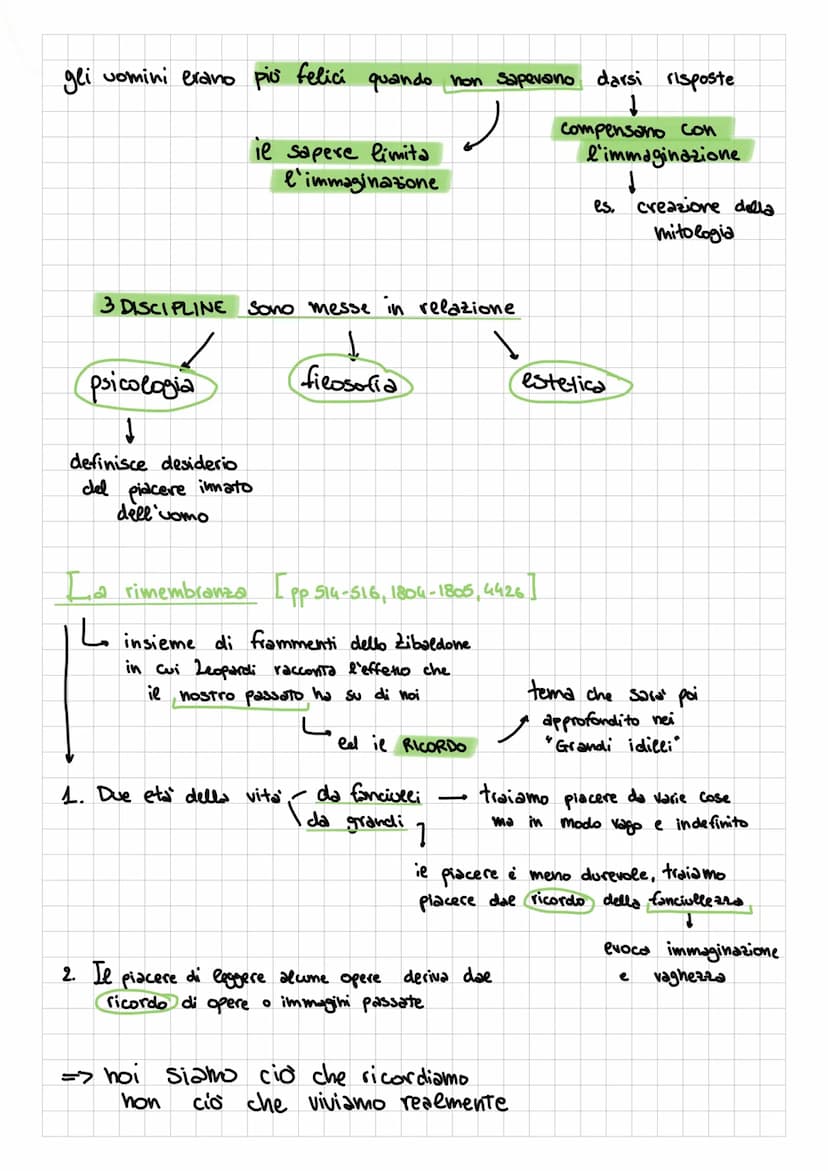 gli uomini erano più felici quando non sapevano darsi risposte
il sapere limita
l'immaginazione
compensano con
l'immaginazione
es. creazione della
mitologia
3 DISCIPLINE sono messe in relazione
psicologia
filosofia
estetica
definisce desiderio
del piacere innato
dell'uomo
La rimembranza [pp 514-516, 1804-1805, 4426]
insieme di frammenti dello Zibaldone
in cui Leopardi racconta l'effetto che
il nostro passato ha su di noi
ed il RICORDO
tema che sara' poi
approfondito nei
"Grandi idilli"
1. Due eta' della vita'
da fanciulli
da grandi
traiamo piacere da varie cose
ma in modo vago e indefinito
il piacere è meno durevole, traiamo
piacere dal ricordo della fanciullezza
evoca immaginazione
e vaghezza
2. Il piacere di leggere alcune opere deriva dal
ricordo di opere o immagini passate
=> noi siamo ciò che ricordiamo
non ciò che viviamo realmente